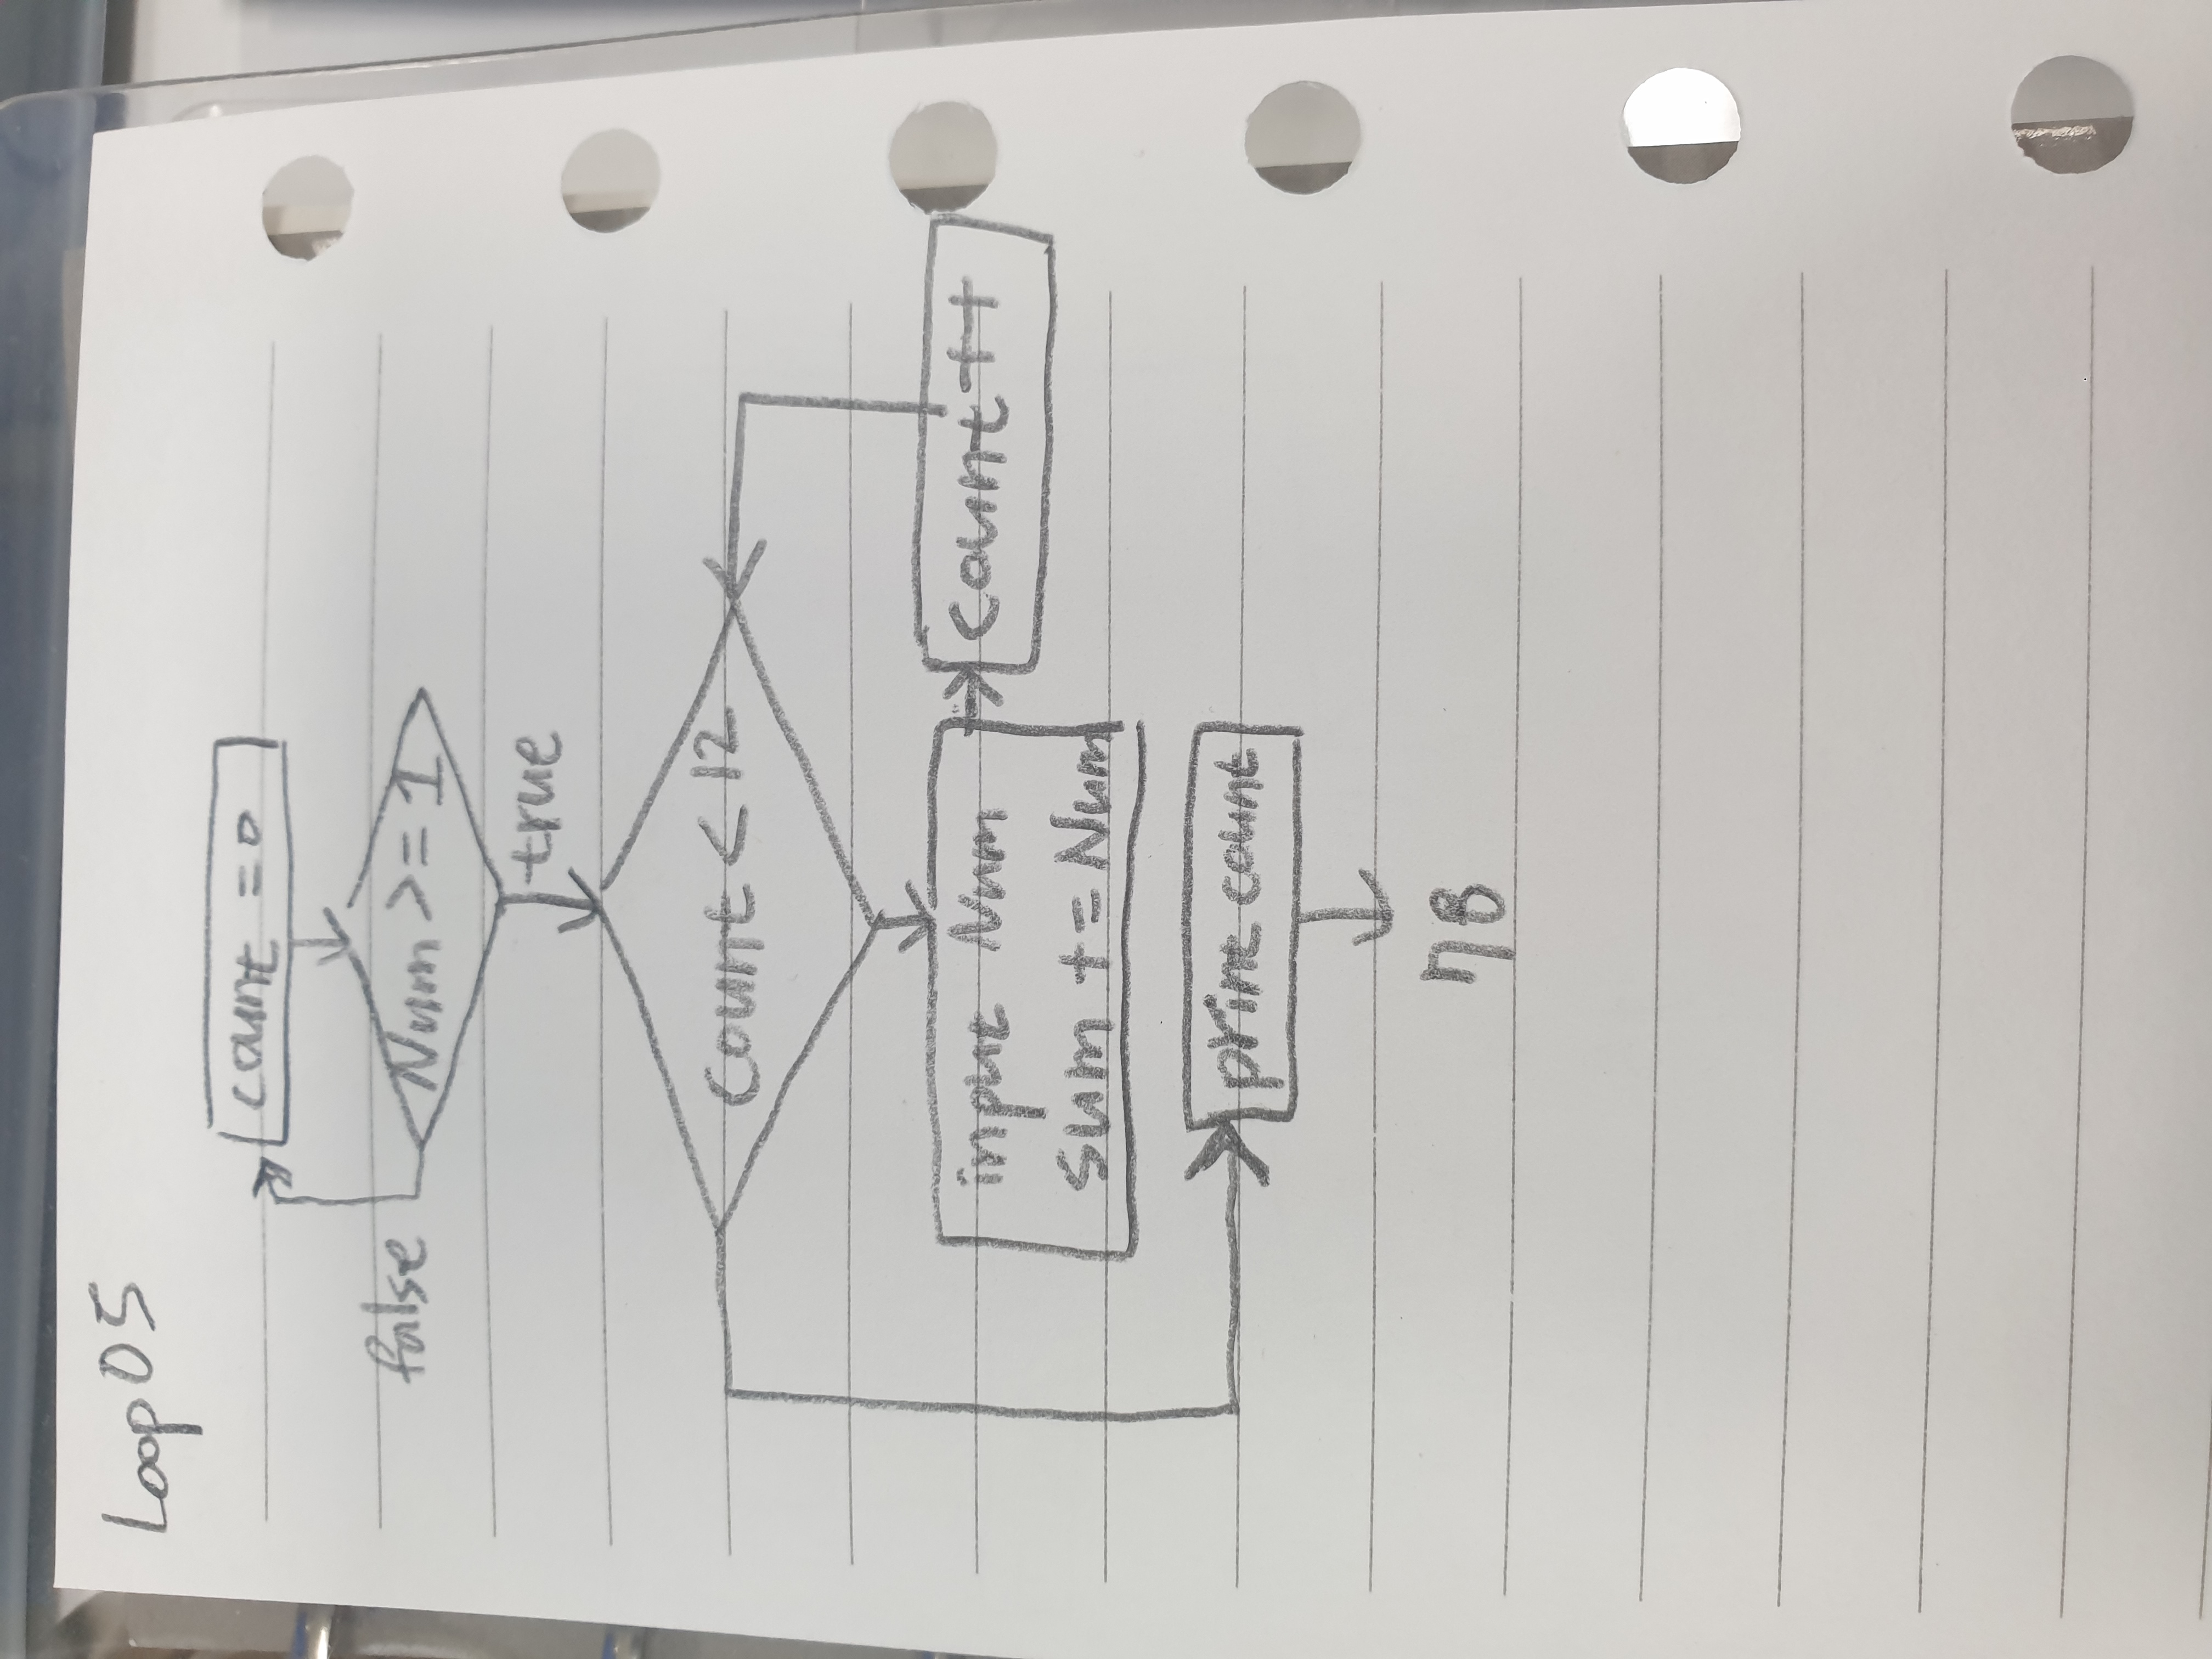 Loop 05
count = 0
false
Num >= 1
true
count < 12
input Num
count ++
sum += Num
print count
78